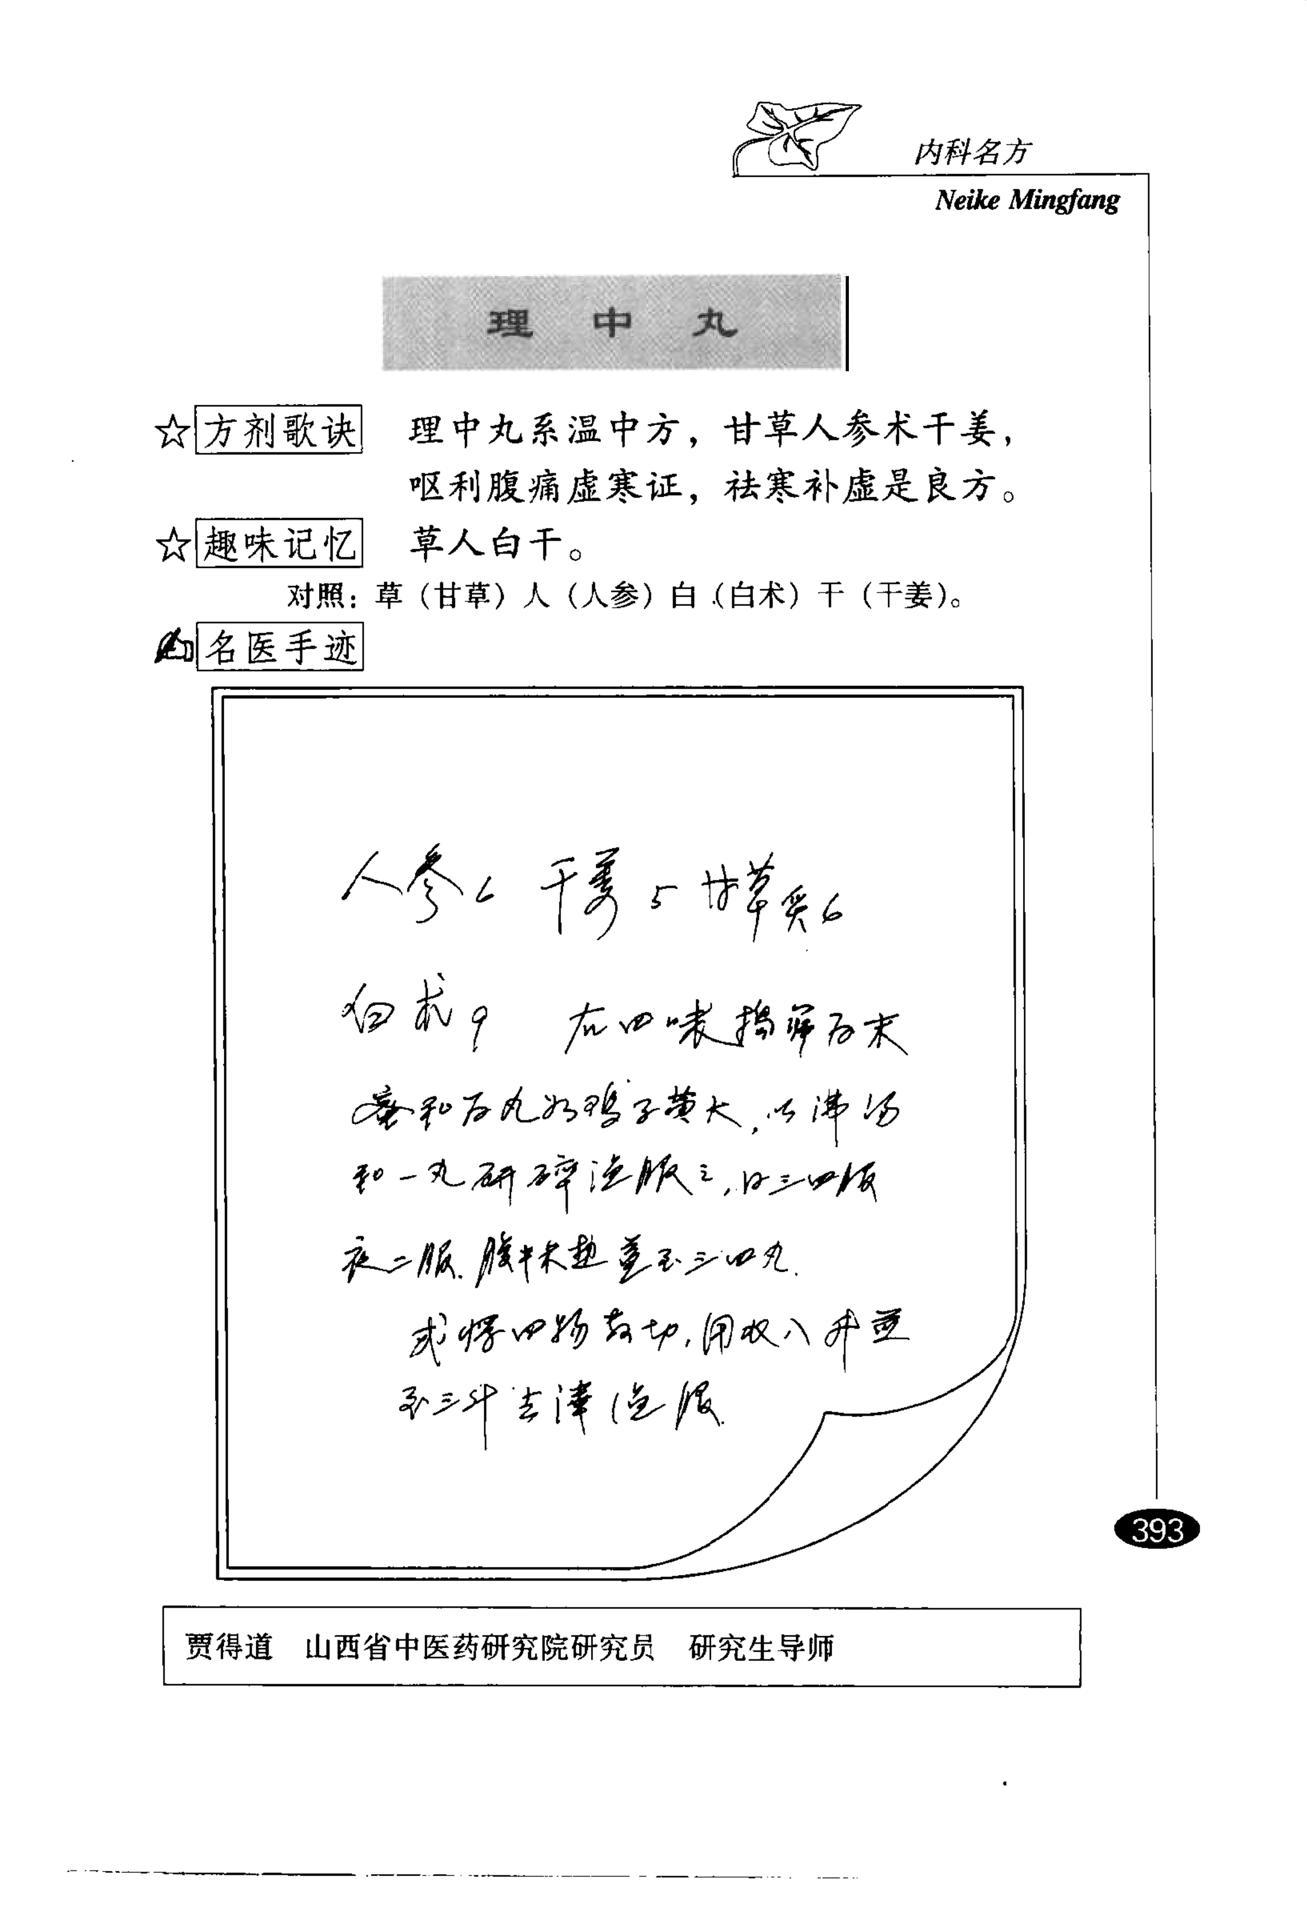 内科名方
Neike Mingfang
理中丸
☆方剂歌诀 理中丸系温中方，甘草人参术干姜，
呕利腹痛虚寒证，祛寒补虚是良方。
☆趣味记忆 草人白干。
对照：草（甘草）人（人参）白（白术）干（干姜）。
名医手迹
人参6 干姜5 甘草炙6
白术9 右四味捣筛为末
蜜和为丸如鸡子黄大，以沸汤
和一丸研碎温服之，日三四服
夜二服。腹中未热益至三四丸。
或将四物 切，用水八升煮
至三升去滓温服
393
贾得道 山西省中医药研究院研究员 研究生导师